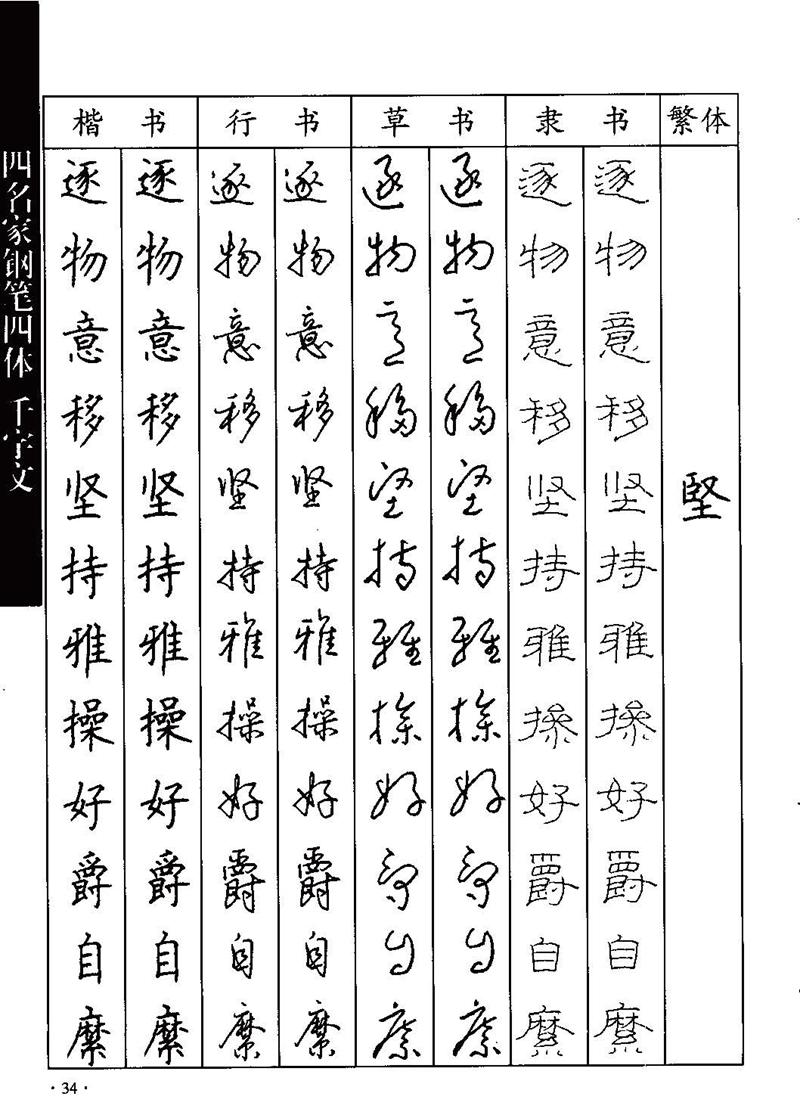 四名家钢笔四体 千字文
楷书 行书 草书 隶书 繁体
逐 逐 逐 逐 逐 逐 逐 逐
物 物 物 物 物 物 物 物
意 意 意 意 意 意 意 意
移 移 移 移 移 移 移 移
坚 坚 坚 坚 坚 坚 坚 坚 堅
持 持 持 持 持 持 持 持
雅 雅 雅 雅 雅 雅 雅 雅
操 操 操 操 操 操 操 操
好 好 好 好 好 好 好 好
爵 爵 爵 爵 爵 爵 爵 爵
自 自 自 自 自 自 自 自
縻 縻 縻 縻 縻 縻 縻 縻
·34·